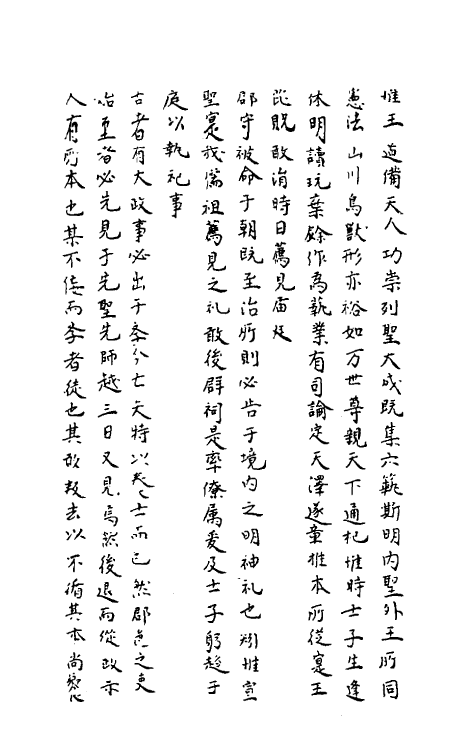 惟王道備天人功崇列聖大成既集六藝斯明内聖外王所同
憲法山川鳥獸形亦裕如万世尊親天下通祀惟時士子生逢
休明讀玩棄餘作為藝業有司論定天澤遂章推本所從寔王
貺敢涓時日薦見庙廷
郡守被命于朝既至治所則必告于境内之明神礼也矧惟宣
聖寔我儒祖薦見之礼敢後群祠是率僚属爰及士子躬趍于
庭以執祀事
古者有大政事必出于學今亡矣特以養士而已然郡邑之吏
始至者必先見于先聖先師越三日又見焉然後退而從政示
人有所本也某不佞而學者徒也其敢去以不循其本尚